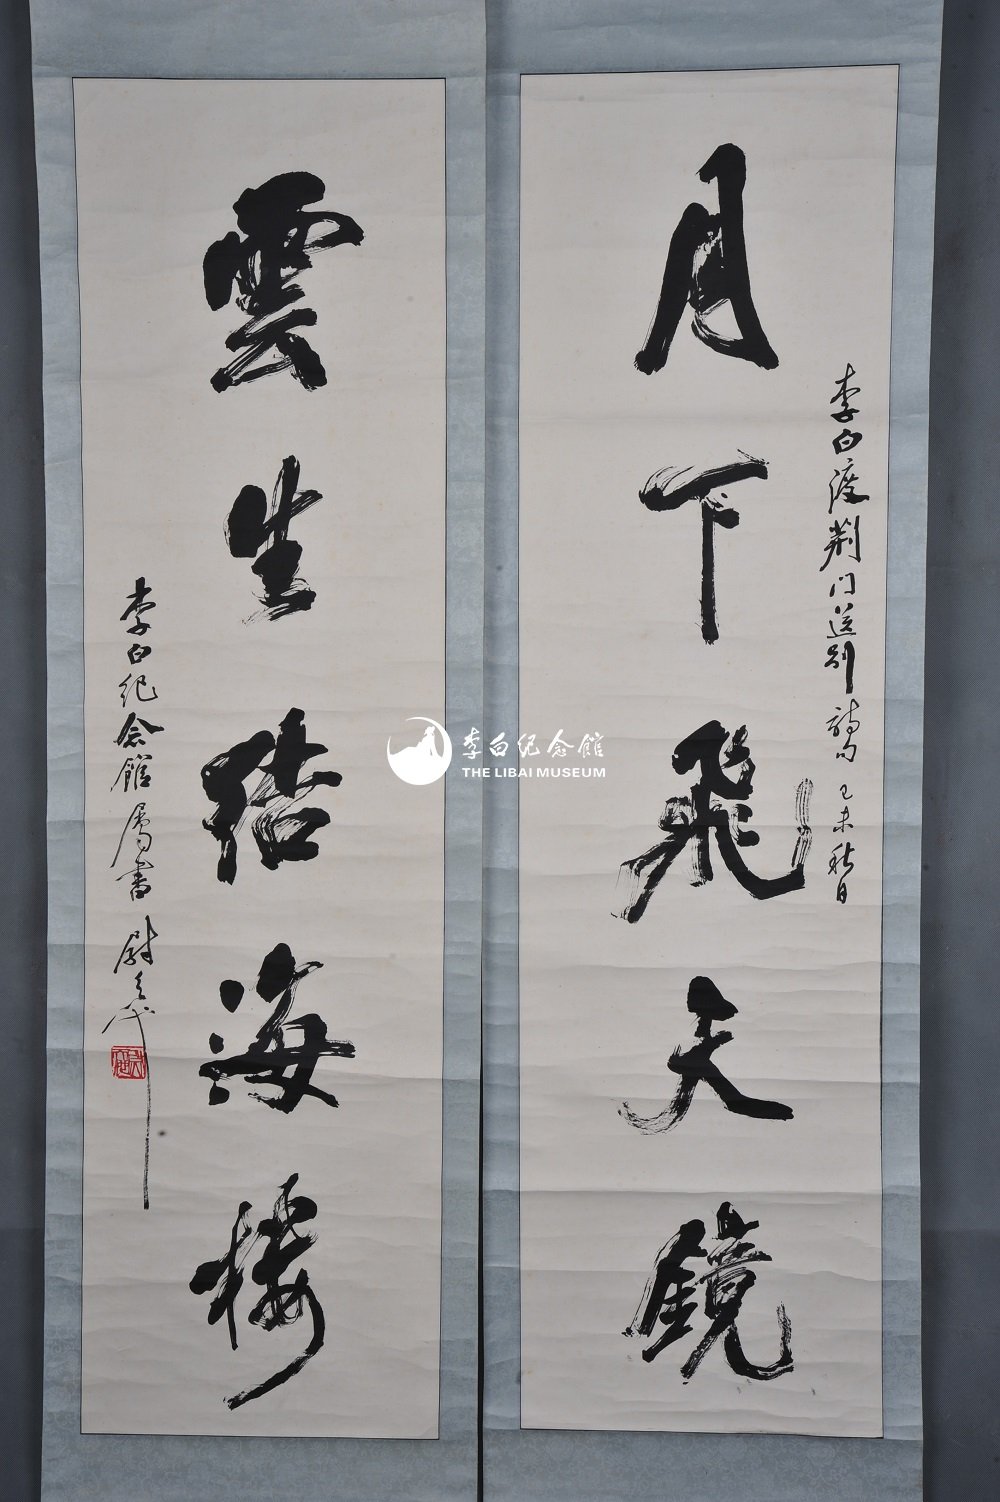 月下飛天鏡
李白渡荆门送别詩句 己未秋日
雲生结海楼
李白纪念館属書 尉天池
李白纪念館
THE LIBAI MUSEUM